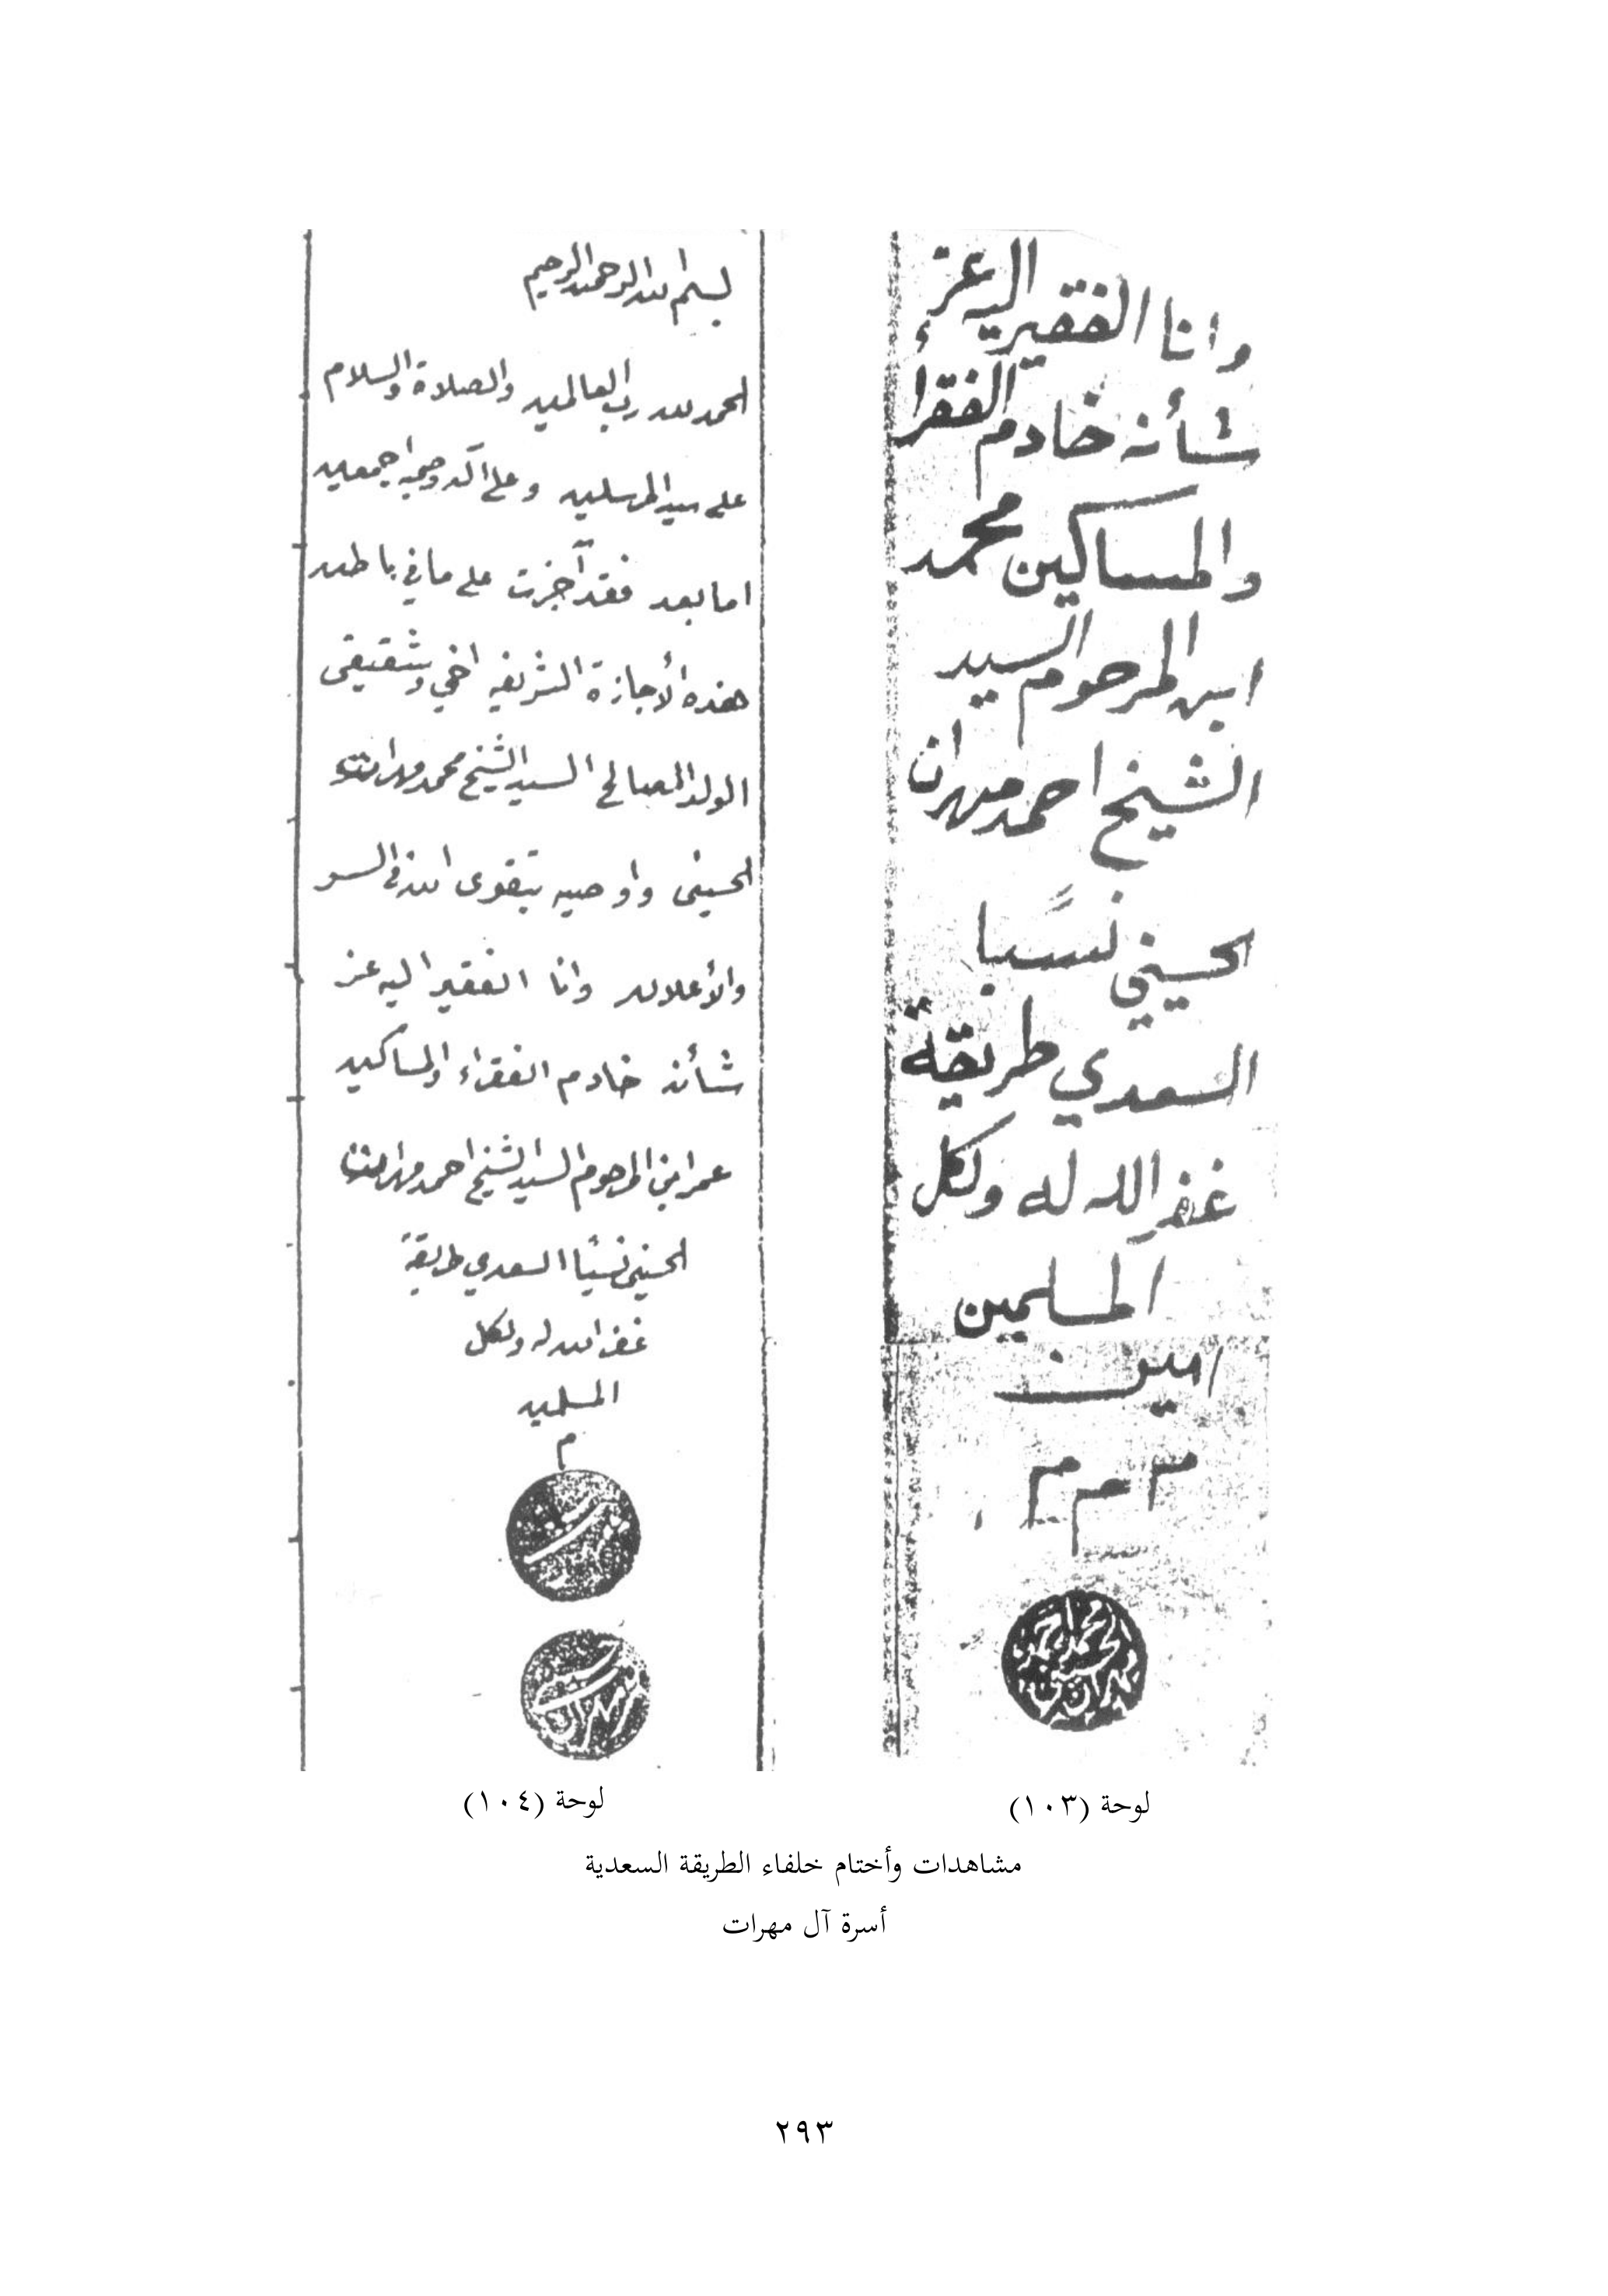 وانا الفقير اليه عز
شأنه خادم الفقراء
والمساكين محمد
ابن المرحوم السيد
الشيخ احمد مهران
الحسيني نسبًا
السعدي طريقة
غفر الله له ولكل
المسلمين
امين
م م م
محمد احمد
مهران
لوحة (١٠٣)
بسم الله الرحمن الرحيم
الحمد لله رب العالمين والصلاة والسلام
على سيد المرسلين وعلى آله وصحبه اجمعين
اما بعد فقد آجزت على ما في باطن
هذه الأجازة الشريفه اخي وشقيقي
الولد الصالح السيد الشيخ محمد مهرات
الحسيني واوصيه بتقوى الله في السر
والأعلان وانا الفقير اليه عز
شأنه خادم الفقراء والمساكين
عمر ابن المرحوم السيد الشيخ احمد مهرات
الحسيني نسبًا السعدي طريقة
غفر الله له ولكل
المسلمين
م
لوحة (١٠٤)
مشاهدات وأختام خلفاء الطريقة السعدية
أسرة آل مهرات
٢٩٣